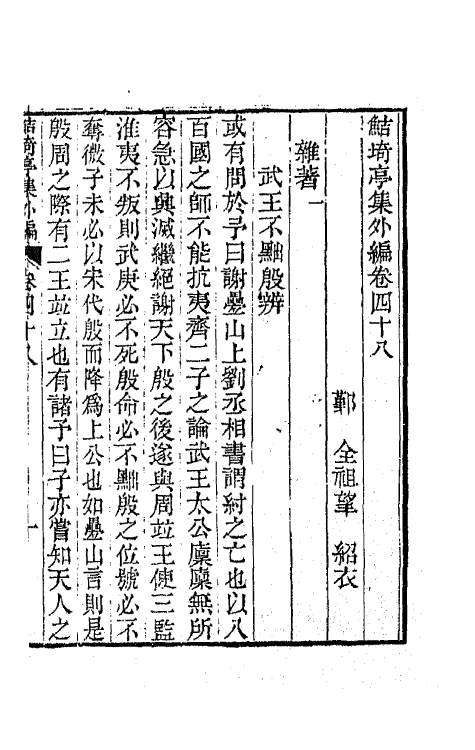 鮚埼亭集外編卷四十八
鄞　全祖望　紹衣
雜著一
武王不黜殷辨
或有問於予曰謝疊山上劉丞相書謂紂之亡也以八
百國之師不能抗夷齊二子之論武王太公廩廩無所
容急以興滅繼絕謝天下殷之後遂與周竝王使三監
淮夷不叛則武庚必不死殷命必不黜殷之位號必不
奪微子未必以宋代殷而降爲上公也如疊山言則是
殷周之際有二王竝立也有諸予曰子亦嘗知天人之
鮚埼亭集外編　卷四十八　一